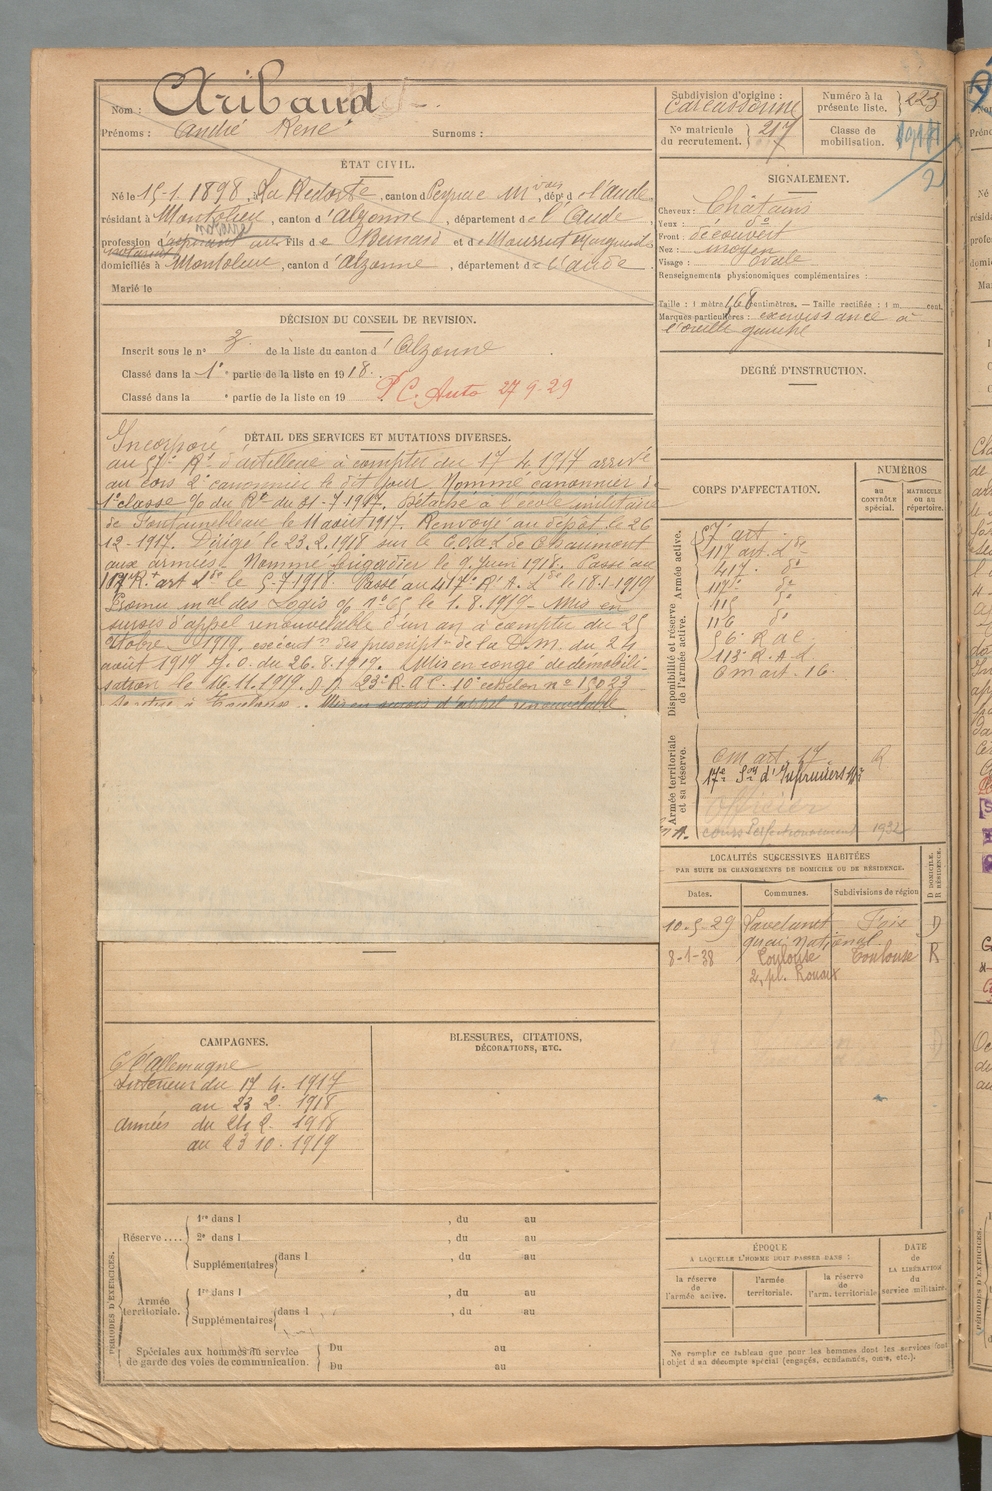 Nom : Aribaud
Prénoms : André René Surnoms :
ÉTAT CIVIL.
Né le 15-1.1898, La Redorte, canton d Peyriac Mvois, dép d e l'Aude
résidant à Montolieu, canton d'Alzonne, département de l'Aude
notaire
profession d'aspirant au notariat Fils de Bernard et de Moussrut Marguerite
domiciliés à Montolieu, canton d'Alzonne, département de l'Aude.
Marié le
DÉCISION DU CONSEIL DE REVISION.
Inscrit sous le n° 3 de la liste du canton d'Alzonne
Classé dans la 1e partie de la liste en 1918.
Classé dans la e partie de la liste en 19 P.C. Auto 27-9-29
DÉTAIL DES SERVICES ET MUTATIONS DIVERSES.
Incorporé
au 57e Rt d'artillerie à compter du 17 4 1917 arrivé
au corps 2e canonnier le dit jour. Nommé canonnier de
1e classe % du Rt du 31-7-1917. Détaché à l'école militaire
de Fontainebleau le 11 août 1917. Renvoyé au dépôt le 26
12-1917. Dirigé le 23.2.1918 sur le C.O.A.L. de Chaumont
aux armées. Nommé brigadier le 9 Juin 1918. Passé au
117e R.t art lde le 5-7-1918. Passé au 417e R.A. lde le 18.1.1919
Promu mal des Logis % n°65 le 1.8.1919. Mis en
sursis d'appel renouvelable d'un an à compter du 25
Octobre 1919, exécutn des prescriptns de la D.M. du 24
août 1919 J.O. du 26.8.1919. Mis en congé de démobili-
sation le 16.11.1919. D.D. 23e R.A.C. 10e échelon n° 13023
Se retire à Toulouse. Mis en sursis d'appel renouvelable
CAMPAGNES.
C/ l'Allemagne
Intérieur du 17 4. 1917
au 23 2. 1918
Armées du 24 2. 1918
au 23 10. 1919
BLESSURES, CITATIONS,
DÉCORATIONS, ETC.
PÉRIODES D'EXERCICES.
Réserve....
1re dans l , du au
2e dans l , du au
Supplémentaires dans l , du au
Armée territoriale.
1re dans l , du au
Supplémentaires dans l , du au
Spéciales aux hommes du service
de garde des voies de communication.
Du au
Du au
Subdivision d'origine : Carcassonne
Numéro à la présente liste. 223
N° matricule du recrutement. 217
Classe de mobilisation. 1918/2
SIGNALEMENT.
Cheveux : Châtains
Yeux : do
Front : découvert
Nez : moyen
Visage : ovale
Renseignements physionomiques complémentaires :
Taille : 1 mètre 68 centimètres. — Taille rectifiée : 1 m cent.
Marques particulières : excroissance à
l'oreille gauche
DEGRÉ D'INSTRUCTION.
CORPS D'AFFECTATION.
NUMÉROS
AU CONTRÔLE spécial.
MATRICULE OU AU répertoire.
Disponibilité et réserve de l'armée active. Armée active.
57e art
117 art. lde
417. do
117e do
115 do
116 do
56e R a C
113e R. A. L
O m art. 16.
Armée territoriale et sa réserve.
O m art. 17. R
17e Son d'Infirmiers Mres
Officier
cours Perfectionnement 1932
LOCALITÉS SUCCESSIVES HABITÉES
PAR SUITE DE CHANGEMENTS DE DOMICILE OU DE RÉSIDENCE.
D DOMICILE. R RÉSIDENCE.
Dates. Communes. Subdivisions de région
10-5-29 Lavelanet Foix D
quai National
8-1-38 Toulouse Toulouse R
2, pl. Rouaix
ÉPOQUE
A LAQUELLE L'HOMME DOIT PASSER DANS :
la réserve de l'armée active.
l'armée territoriale.
la réserve de l'arm. territoriale
DATE de LA LIBÉRATION du service militaire.
Ne remplir ce tableau que pour les hommes dont les services font
l'objet d'un décompte spécial (engagés, condamnés, omis, etc.).